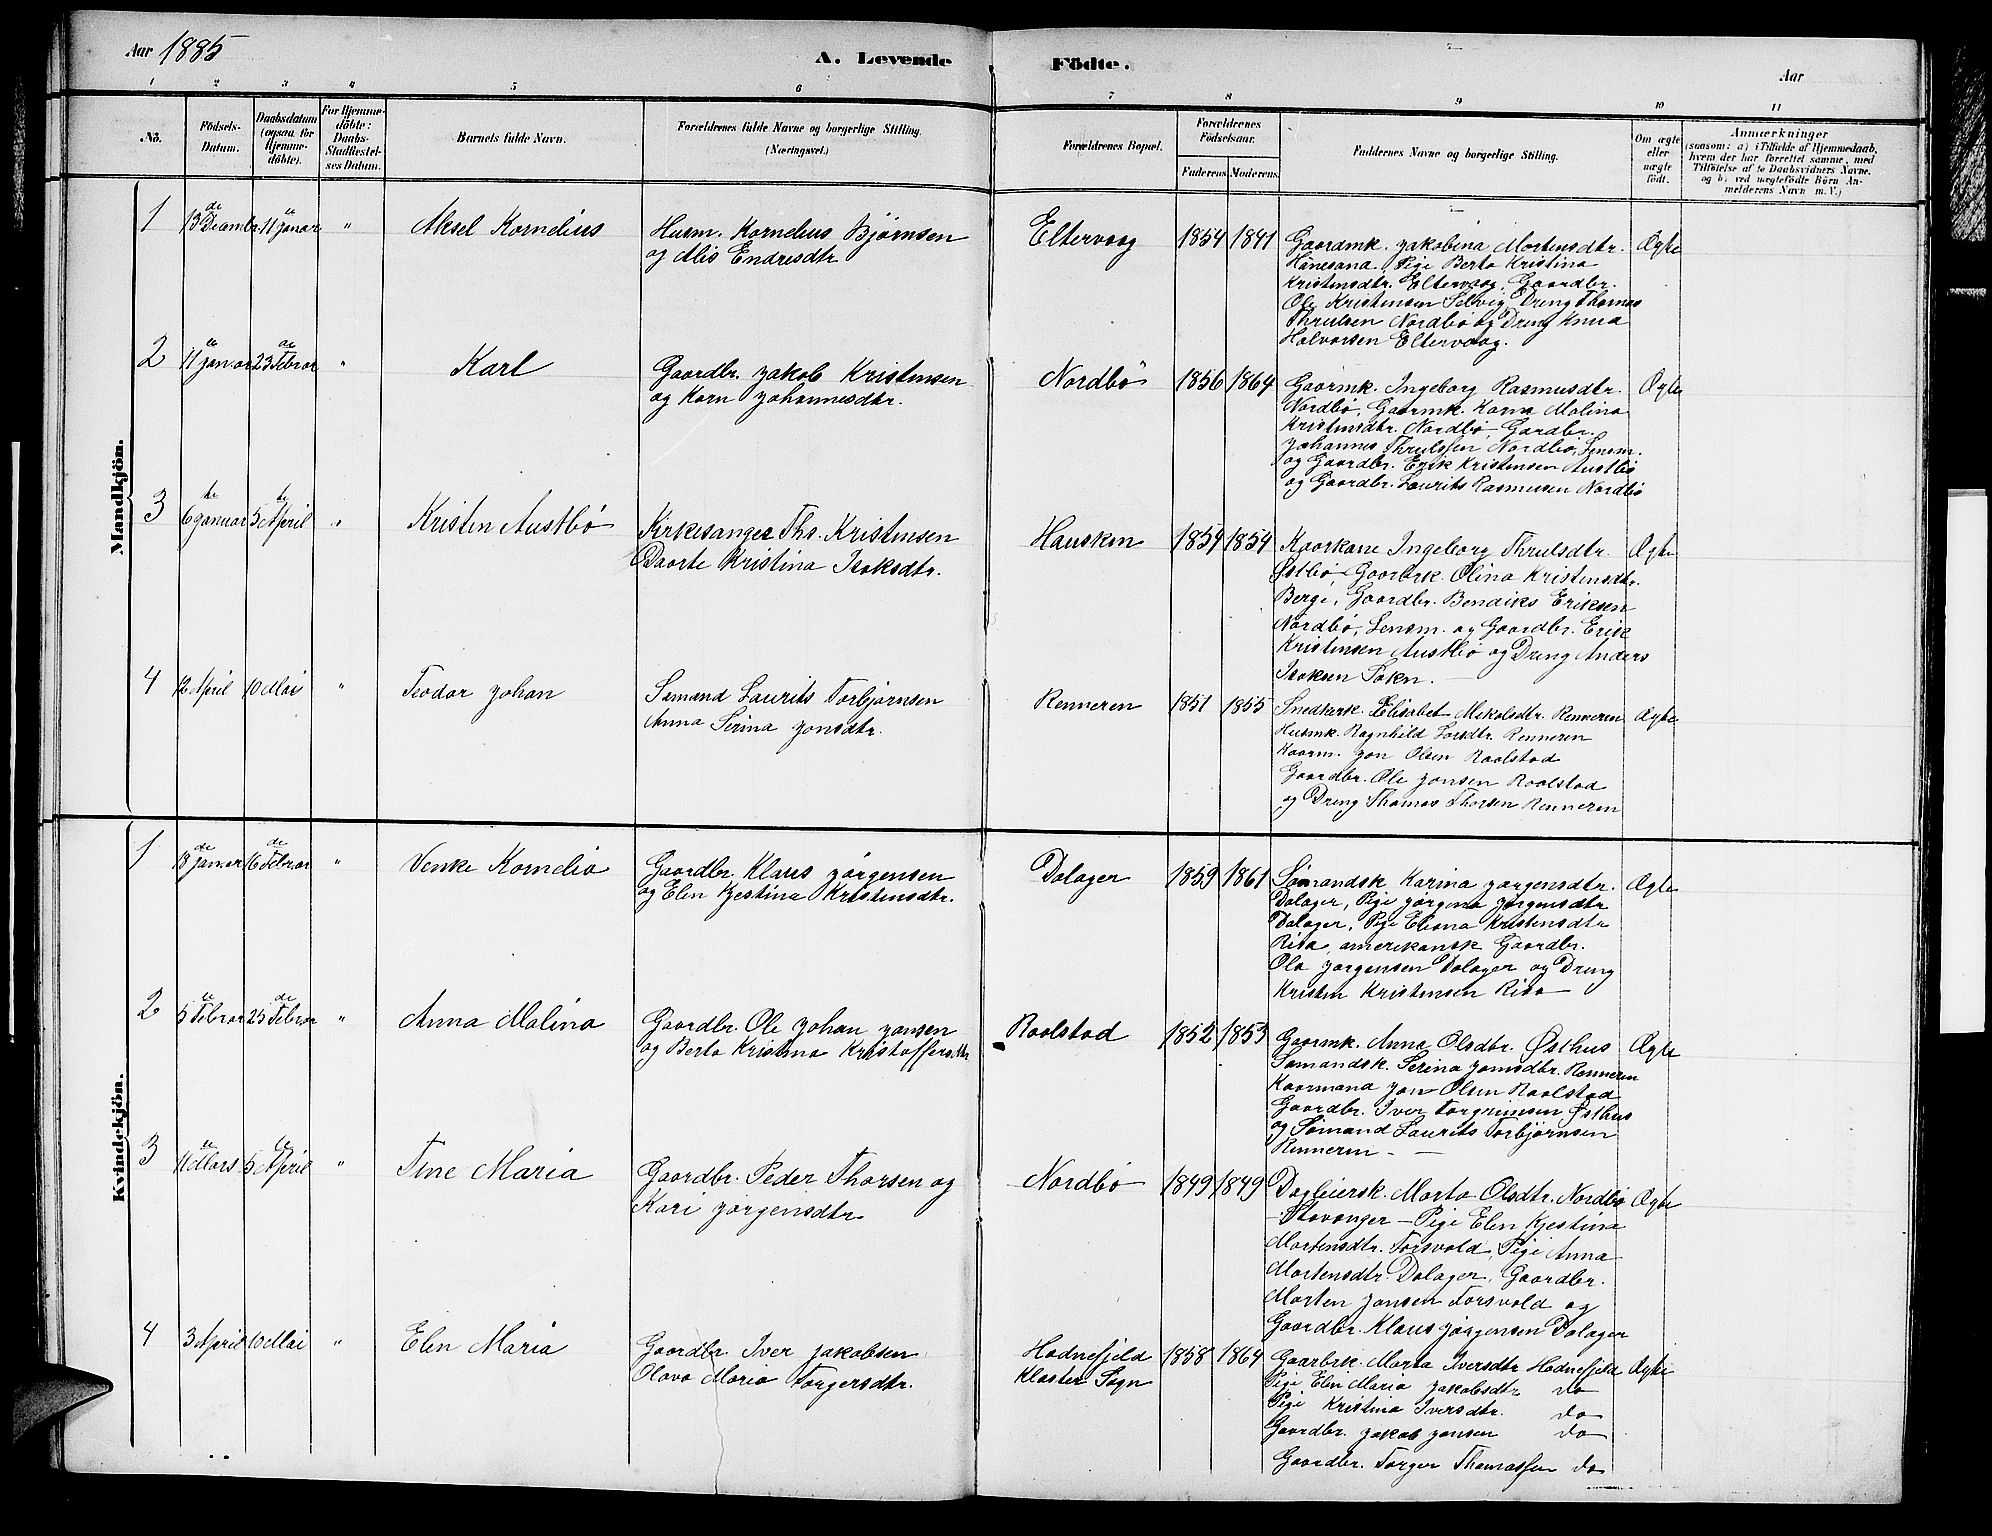 Aar 1885
A. Levende
Födte.
Aar
1 2 3 4 5 6 7 8 9 10 11
No.
Födsels-
Datum.
Daabsdatum
(ogsaa for
Hjemme-
döbte).
For Hjemme-
döbte:
Daabs-
Stadfæstel-
ses Datum.
Barnets fulde Navn.
Forældrenes fulde Navne og borgerlige Stilling.
(Næringsvei.)
Forældrenes Bopæl.
Forældrenes
Födselsaar.
Faderens Moderens
Faddernes Navne og borgerlige Stilling.
Om ægte
eller
uægte
födt.
Anmærkninger
(saasom: a) i Tilfælde af Hjemmedaab,
hvem der har forrettet samme, med
Tilföielse af to Daabsvidners Navne,
og b) ved uægtefödte Börn An-
melderens Navn m. V.)
Mandkjön.
1 13de Decembr. 11te Januar " Aksel Kornelius
Husm. Kornelius Bjørnsen
og Alis Endresdtr
Eltervaag 1854 1841
Gaardmk. Jakobina Mortensdtr.
Hanesand. Pige Berta Kristina
Kristensdtr. Eltervaag, Gaardbr.
Ole Kristensen Selvig Dreng Thomas
Thrulsen Nordbö og Dreng Knud
Halvorsen Eltervaag.
Ægte
2 11te Januar 23de Februar " Karl
Gaardbr. Jakob Kristensen
og Karn Johannesdtr.
Nordbö 1856 1864
Gaarmk. Ingeborg Rasmusdtr.
Nordbö, Gaarmk. Karna Malina
Kristensdtr. Nordbö, Gardbr.
Johannes Thrulssen Nordbö, Lensm.
og Gaardbr. Erik Kristensen Austbö
og Gaardbr. Laurits Rasmussen Nordbö
Ægte
3 6te Januar 5te April " Kristen Austbö
Kirkesanger Ths. Kristensen
Daarte Kristina Isaksdtr.
Hausken 1854 1854
Kaarkone Ingeborg Thrulsdtr.
Östbö Gaarbrk. Olina Kristensdtr.
Berge, Gaardbr. Bendiks Eriksen
Nordbö, Lensm. og Gaardbr. Erik
Kristensen Austbö og Dreng Anders
Isaksen Sokn.
Ægte
4 12 April 10 Mai " Teodor Johan
Sømand Laurits Torbjørnsen
Anna Serina Jonsdtr.
Renneren 1851 1855
Snedkerk. Elisabet Mikalsdtr. Renneren
Husmk. Ragnhild Larsdtr. Renneren
Kaarm. Jon Olsen Raalstad
Gaardbr. Ole Jonsen Raalstad
og Dreng Thomas Thorsen Renneren
Ægte
Kvindekjön.
1 18de Januar 16de Februar " Venke Kornelia
Gaardbr. Klaus Jørgensen
og Elen Kjestina Kristensdtr.
Dalager 1859 1861
Sømandsk Karina Jørgensdtr.
Dalager, Pige Jørgena Jørgensdtr
Dalager, Pige Eliana Kristensdtr
Risa, amerikansk Gaardbr.
Ola Jørgensen Dalager og Dreng
Kristen Kristensen Risa
Ægte
2 5te Februar 25de Februar " Anna Malina
Gaardbr. Ole Johan Jonsen
og Berta Kristina Kristoffersdtr
Raalstad 1852 1853
Gaarmk. Anna Olsdtr. Østhus
Sømandsk. Serina Jonsdtr. Renneren
Kaarmand Jon Olsen Raalstad
Gaardbr. Iver Torgrimsen Østhus
og Sømand Laurits Torbjørnsen
Renneren
Ægte
3 11te Mars 5te April " Tine Maria
Gaardbr. Peder Thorsen og
Kari Jørgensdtr
Nordbö 1849 1849
Dagleiersk. Marta Olsdtr. Nordbö
- Stavanger - Pige Elen Kjestina
Mortensdtr. Forsvold, Pige Anna
Mortensdtr. Dalager, Gaardbr.
Morten Jonsen Forsvold og
Gaardbr. Klaus Jørgensen Dalager
Ægte
4 3 April 10 Mai " Elen Maria
Gaardbr. Iver Jakobsen
Olava Maria Torgersdtr.
Hodnefjeld
Kloster Sogn
1858 1864
Gaarbrk. Maria Iversdtr Hodnefjeld
Pige Elen Maria Jakobsdtr do
Pige Kristina Iversdtr. do
Gaardbr. Jakob Jonsen do
Gaardbr. Torger Thomassen do
Ægte